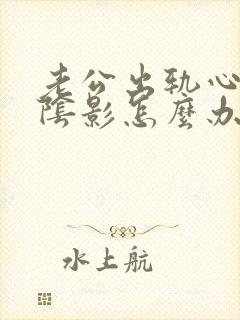 老公出轨心
陰影怎麼办
水上航